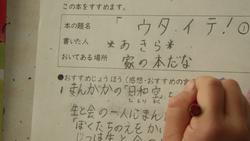 この本をすすめます。
本の題名 「ウタ イテ!①
書いた人 *あきら*
おいてある場所 家の本だな
●おすすめじょうほう(感想・おすすめの
まんがかの「日和空
生と会の一人にまん
ぼくたちのえをかい